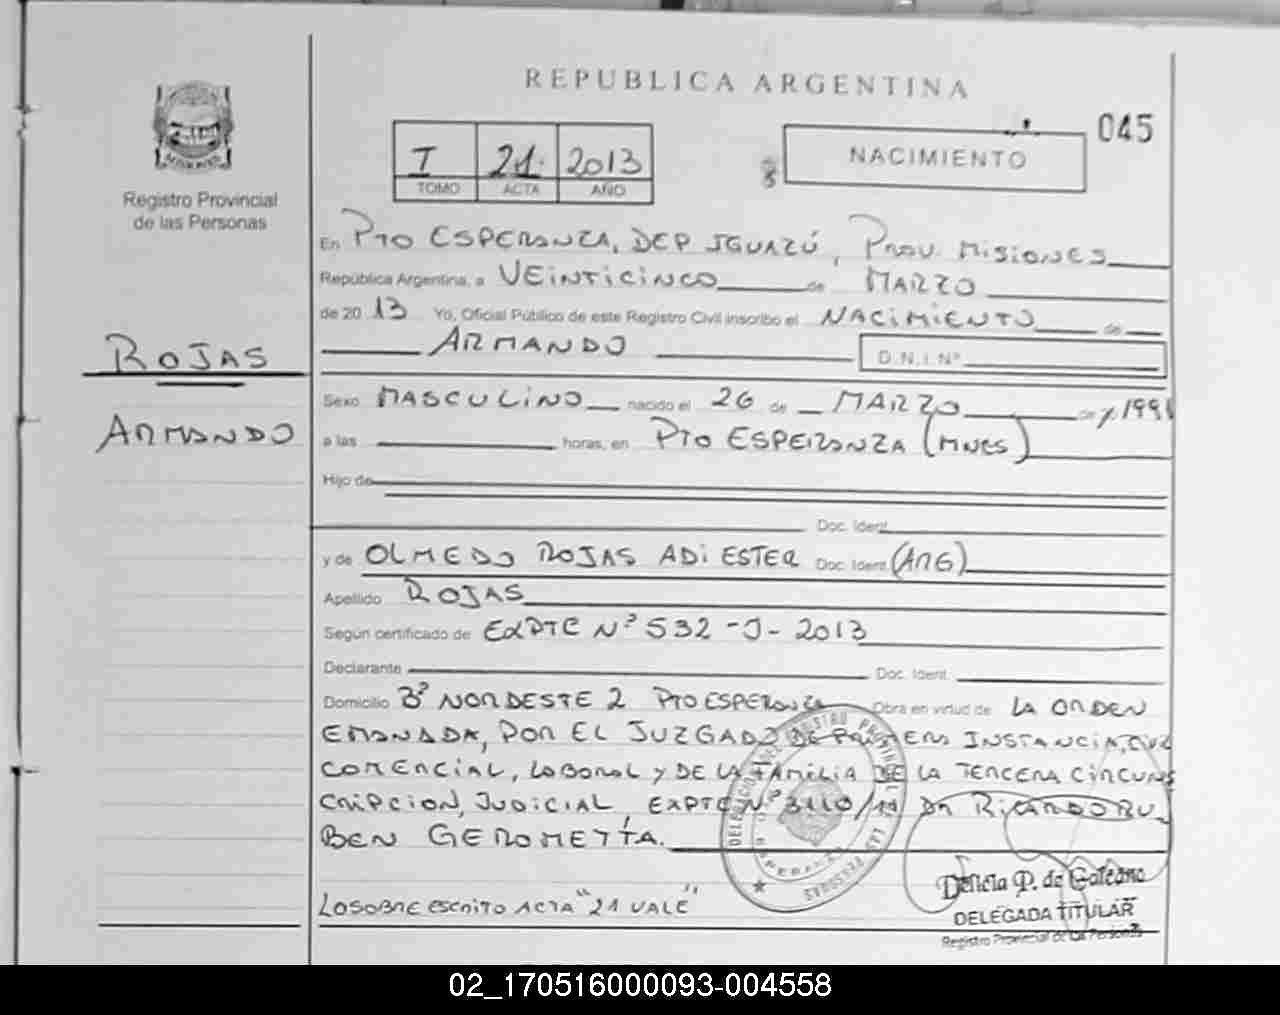 REPUBLICA ARGENTINA
045
I 21 2013
TOMO ACTA AÑO
NACIMIENTO
Registro Provincial
de las Personas
En PTO ESPERANZA, DEP IGUAZÚ, PROV. MISIONES
República Argentina, a VEINTICINCO de MARZO
de 2013 Yo, Oficial Público de este Registro Civil inscribo el NACIMIENTO de
ARMANDO D.N.I. Nº
ROJAS
ARMANDO
Sexo MASCULINO nacido el 26 de MARZO de 199
a las horas, en PTO ESPERANZA (MNES)
Hijo de
Doc. Ident.
y de OLMEDO ROJAS ADI ESTER Doc. Ident. (ARG)
Apellido ROJAS
Según certificado de EXPTE Nº 532 - J - 2013
Declarante Doc. Ident.
Domicilio Bº NORDESTE 2 PTO ESPERANZA Obra en virtud de LA ORDEN
EMANADA, POR EL JUZGADO DE PRIMERA INSTANCIA, CIVIL
COMERCIAL, LABORAL Y DE LA FAMILIA DE LA TERCERA CIRCUNS
CRIPCION, JUDICIAL, EXPTE Nº 3110/11 DR RICARDO RU_
BEN GEROMETTA.
LO SOBRE ESCRITO ACTA "21 VALE"
Delicia P. de Galeano
DELEGADA TITULAR
Registro Provincial de las Personas
02_170516000093-004558